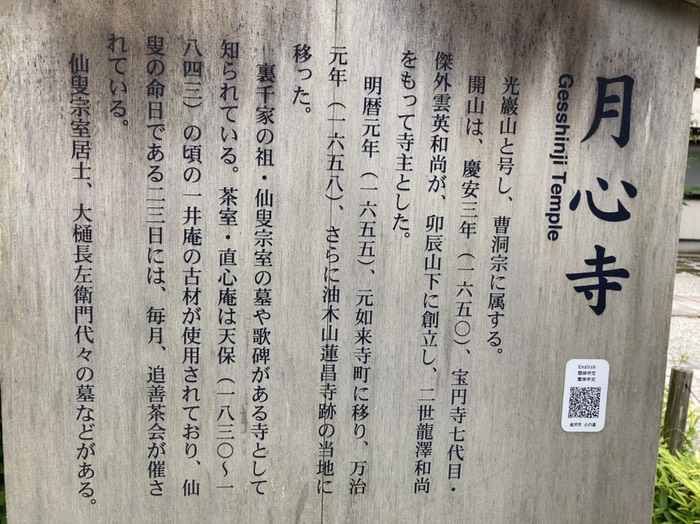 月心寺
Gesshinji Temple
光巖山と号し、曹洞宗に属する。
開山は、慶安三年（一六五〇）、宝円寺七代目・
傑外雲英和尚が、卯辰山下に創立し、二世龍澤和尚
をもって寺主とした。
明暦元年（一六五五）、元如来寺町に移り、万治
元年（一六五八）、さらに油木山蓮昌寺跡の当地に
移った。
裏千家の祖・仙叟宗室の墓や歌碑がある寺として
知られている。茶室・直心庵は天保（一八三〇〜一
八四三）の頃の一井庵の古材が使用されており、仙
叟の命日である二三日には、毎月、追善茶会が催さ
れている。
仙叟宗室居士、大樋長左衛門代々の墓などがある。
English
簡体中文
繁体中文
金沢市 心の道